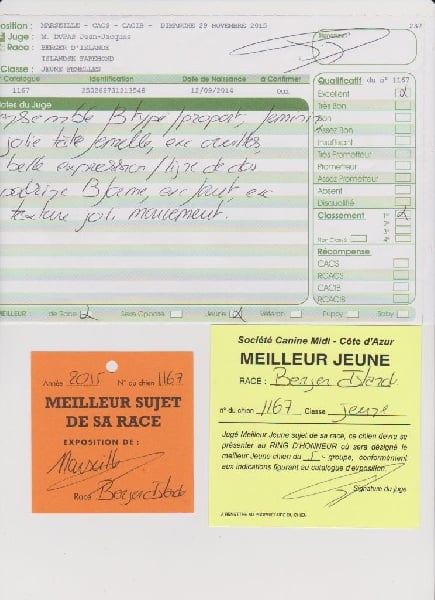 osition : MARSEILLE - CACS - CACIB - DIMANCHE 29 NOVEMBRE 2015 247
Juge : M. DUPAS Jean-Jacques
Race : BERGER D'ISLANDE
ISLANDSK FAREHOND
Classe : JEUNE FEMELLES
Catalogue Identification Date de Naissance à Confirmer
1167 12/09/2014 Oui
Qualificatif du n° 1167
Excellent
Très Bon
Bon
Assez Bon
Insuffisant
Très Prometteur
Prometteur
Assez Prometteur
Absent
Disqualifié
Classement 1er
2e
3e
Non Classé 4e
Récompense
CACS
RCACS
CACIB
RCACIB
otes du Juge
ensemble B type/proport, féminin
jolie tête femelle, oreilles
belle expression/ligne de dos
poitrine B forme, en
texture joli mouvement.
MEILLEUR : de Race Sexe Opposé Jeune Vétéran Puppy Baby
Année 2015 N° du chien 1167
MEILLEUR SUJET
DE SA RACE
EXPOSITION DE :
Marseille
Race Berger Islande
Société Canine Midi - Côte d'Azur
MEILLEUR JEUNE
RACE : Berger Islande
n° du chien 1167 Classe Jeune
Jugé Meilleur Jeune sujet de sa race, ce chien devra se
présenter au RING D'HONNEUR où sera désigné le
meilleur Jeune chien du 5e groupe, conformément
aux indications figurant au catalogue d'exposition.
Signature du juge
A REMETTRE AU PROPRIETAIRE DU CHIEN